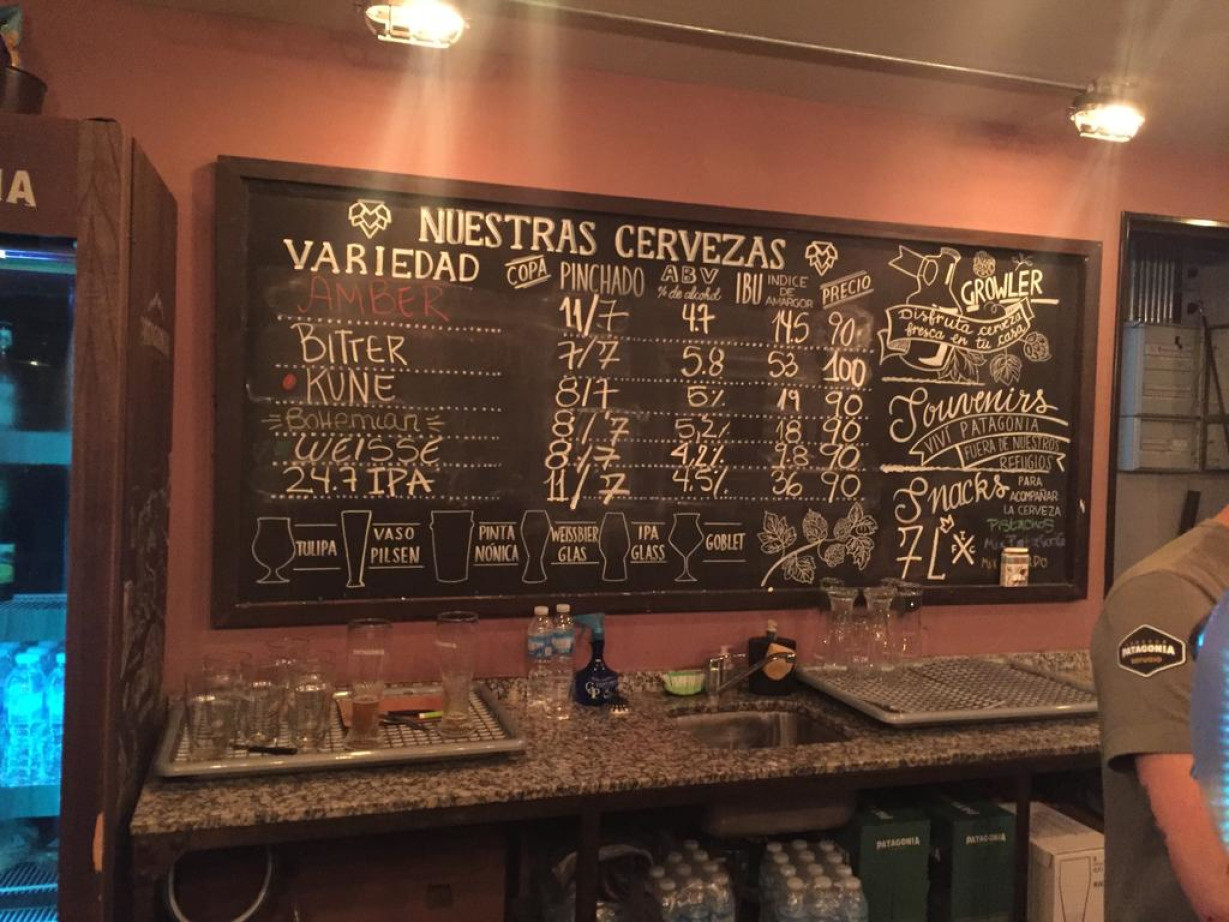 NUESTRAS CERVEZAS
VARIEDAD COPA PINCHADO ABV % de alcohol IBU INDICE DE AMARGOR PRECIO
AMBER 11/7 4.7 14.5 90
BITTER 7/7 5.8 53 100
KUNE 8/7 5% 19 90
Bohemian 8/7 5,2% 18 90
WEISSE 8/7 4,2% 18 90
24.7 IPA 11/7 4.5% 36 90
TULIPA
VASO
PILSEN
PINTA
NONICA
WEISSBIER
GLAS
IPA
GLASS
GOBLET
GROWLER
Disfruta cerveza
fresca en tu casa
Souvenirs
VIVÍ PATAGONIA
FUERA DE NUESTROS
REFUGIOS
Snacks
PARA
ACOMPAÑAR
LA CERVEZA
PISTACHOS
MIX
MIX
IA
PATAGONIA
PATAGONIA
PATAGONIA